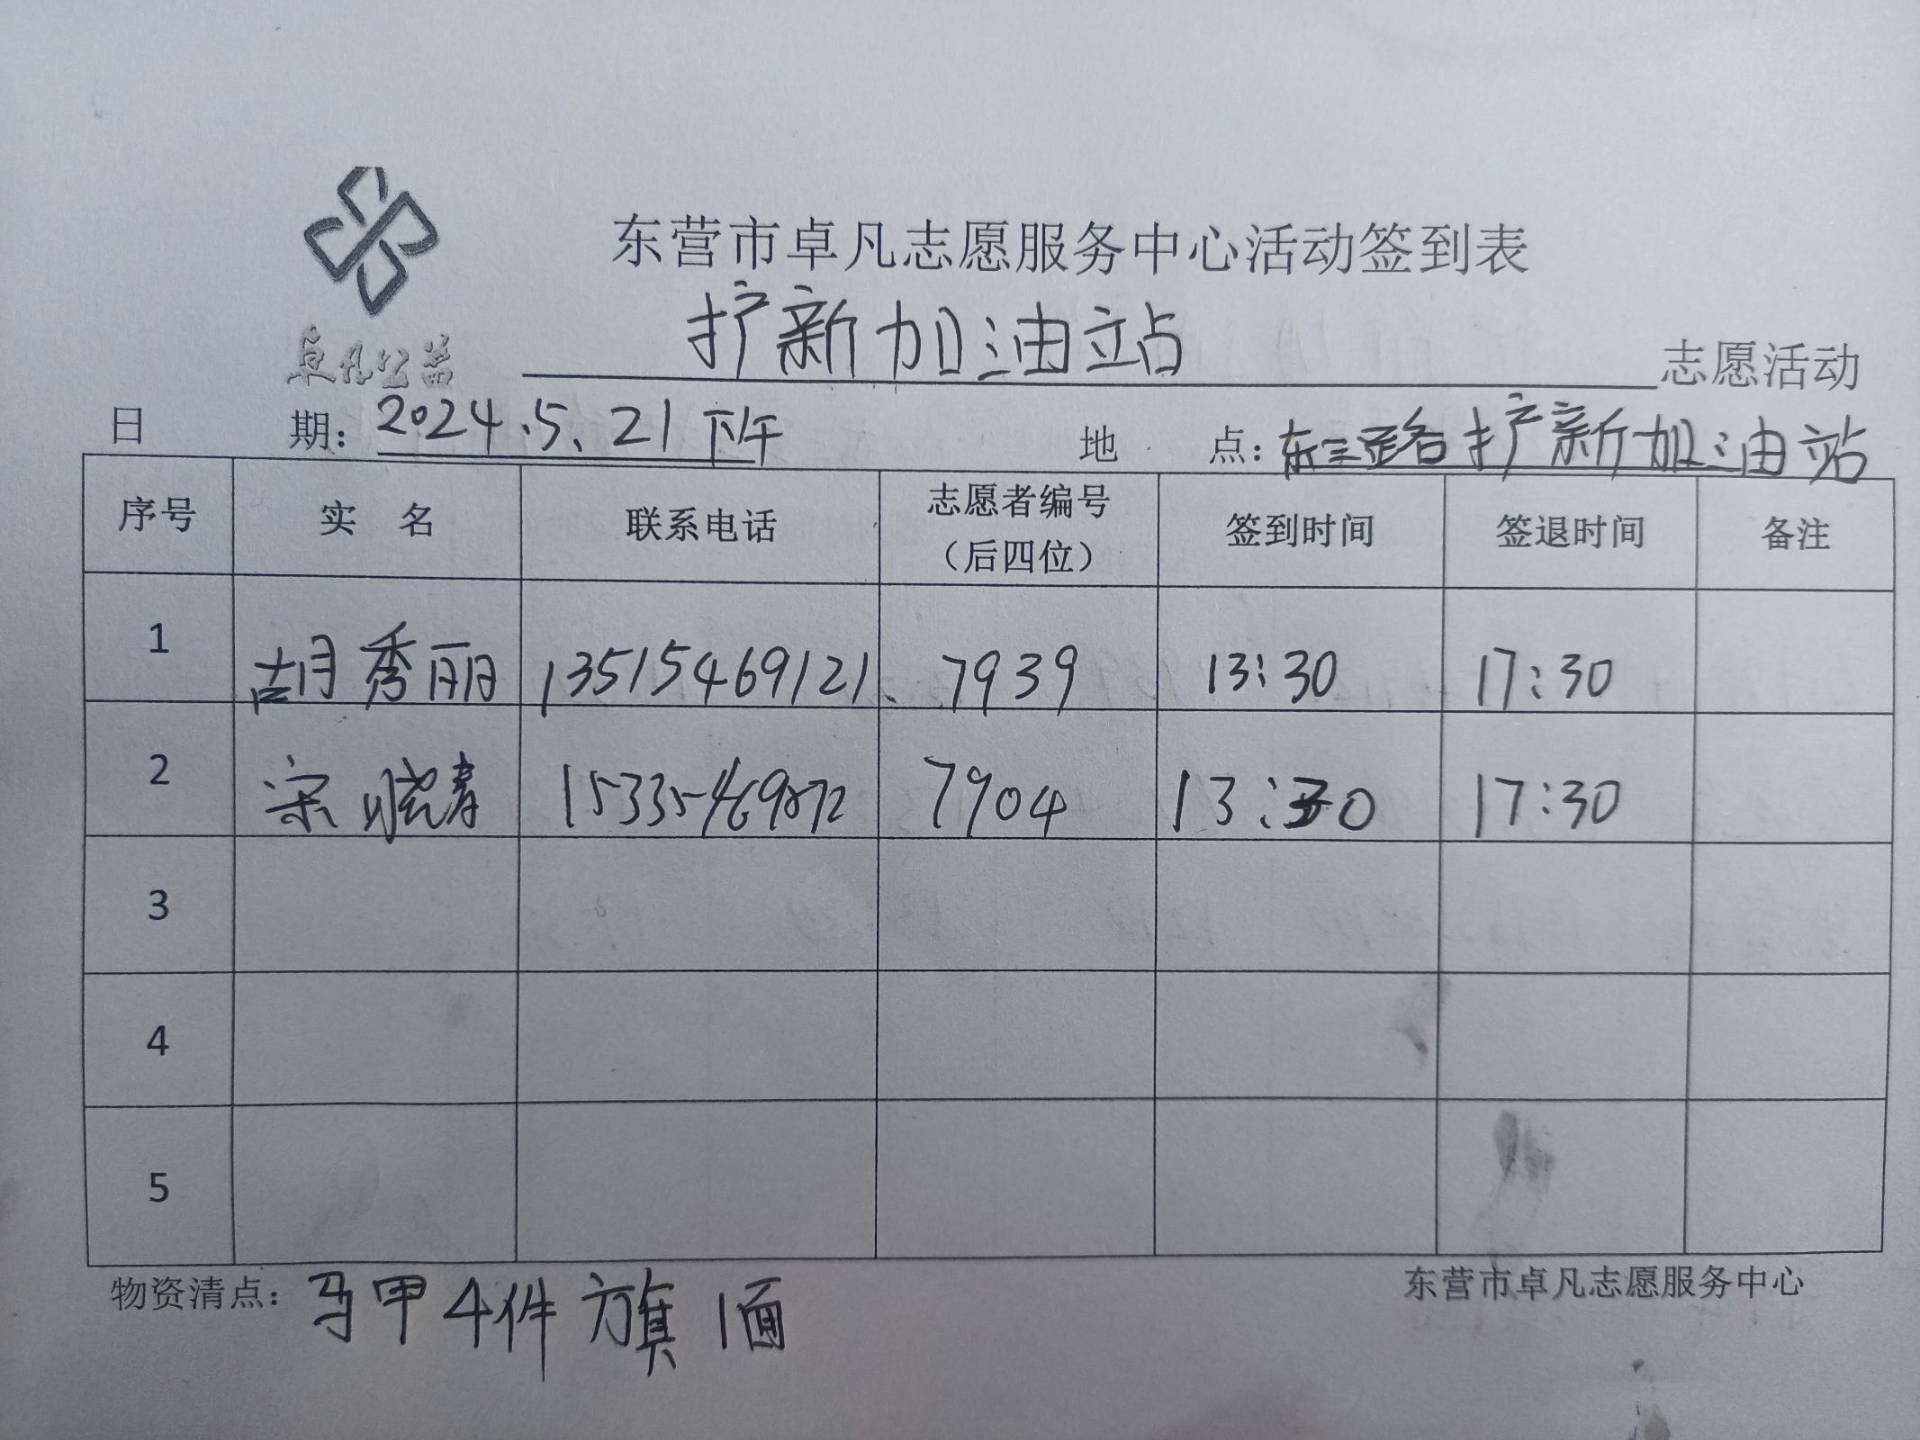 东营市卓凡志愿服务中心活动签到表
卓凡公益
扩新加油站 志愿活动
日 期: 2024.5.21下午 地 点: 东三路扩新加油站
序号 实 名 联系电话 志愿者编号（后四位） 签到时间 签退时间 备注
1 胡秀丽 13515469121 7939 13:30 17:30
2 宋晓春 7904 13:30 17:30
3
4
5
物资清点: 马甲4件 旗1面 东营市卓凡志愿服务中心